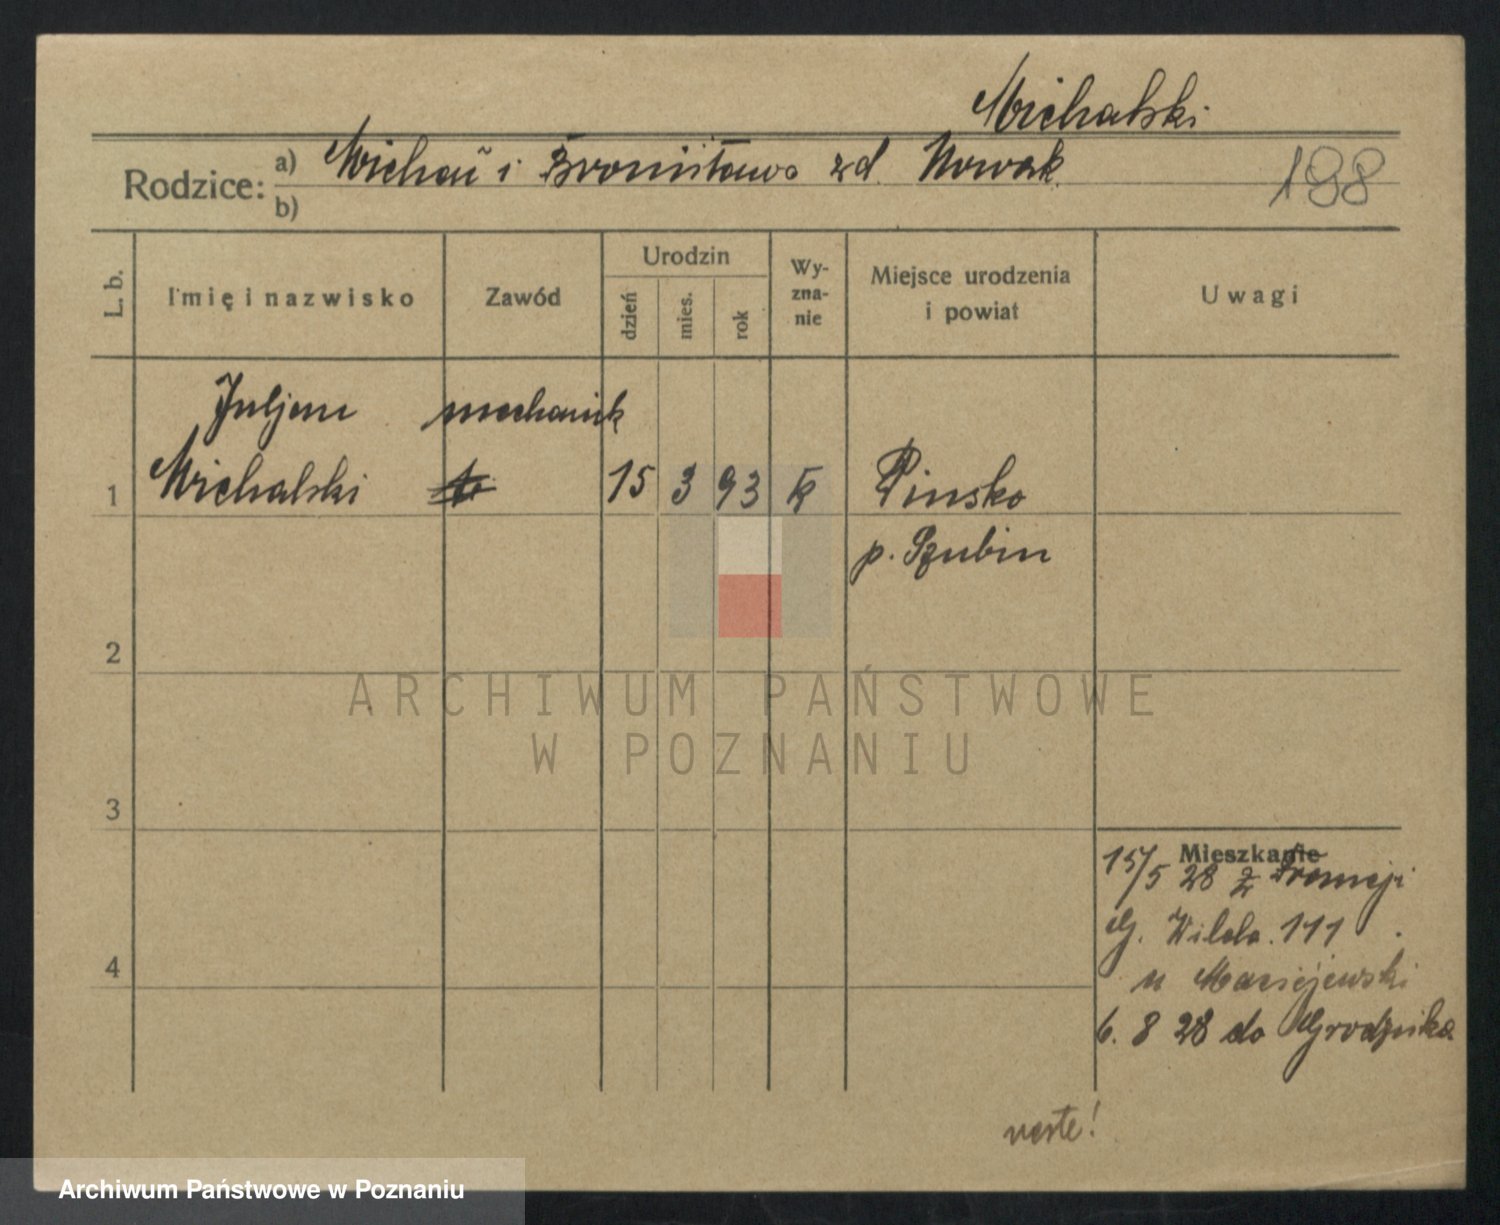 Michalski
Rodzice: a) Michał i Bronisława zd. Nowak
b)
188
L. b.
Imię i nazwisko
Zawód
Urodzin
dzień
mies.
rok
Wy-
zna-
nie
Miejsce urodzenia
i powiat
Uwagi
Juljan mechanik
1 Michalski 15 3 93 k Pinsko
p. Szubin
2
ARCHIWUM PAŃSTWOWE
W POZNANIU
3
Mieszkanie
15/5 28 z Francji
G. Wilda. 111
4
u Maciejewski
6. 8 28 do Grodziska
verte!
Archiwum Państwowe w Poznaniu